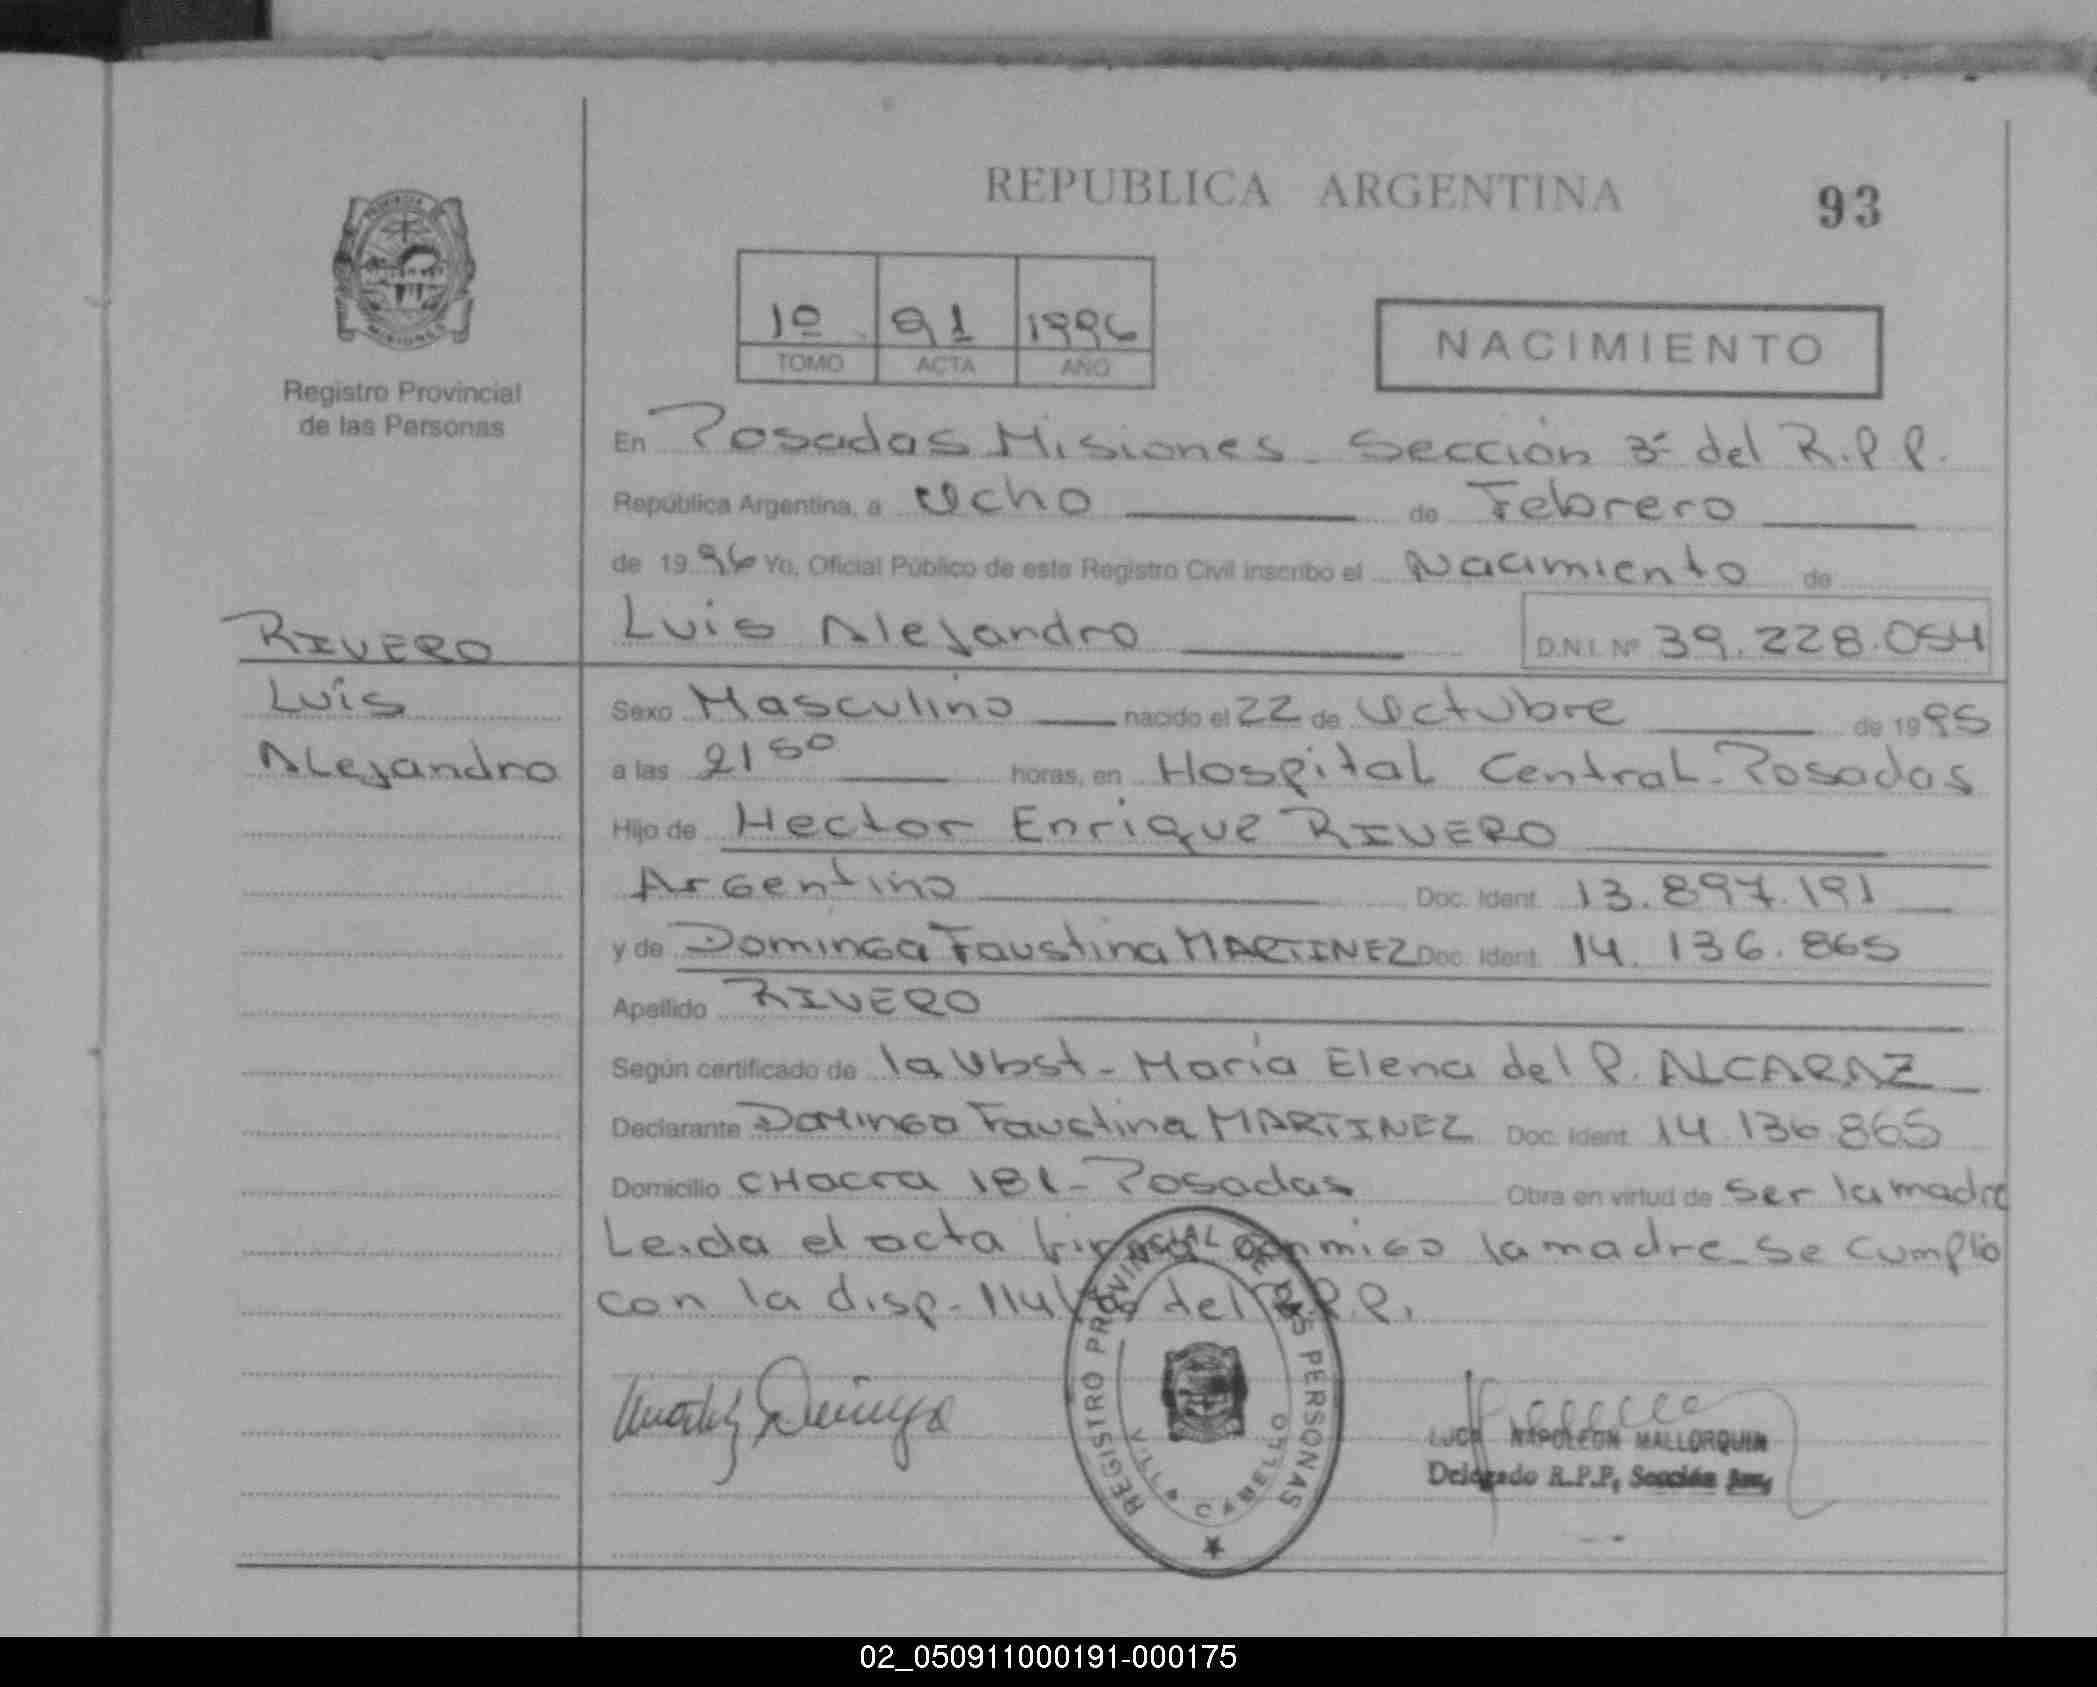 REPUBLICA ARGENTINA
93
Registro Provincial
de las Personas
1º 91 1996
TOMO ACTA AÑO
NACIMIENTO
En Posadas Misiones - Sección 3ª del R.P.P.
República Argentina, a Ocho de Febrero
de 1996 Yo, Oficial Público de este Registro Civil inscribo el Nacimiento de
Luis Alejandro D.N.I. Nº 39.228.054
RIVERO
Luis
Alejandro
Sexo Masculino nacido el 22 de Octubre de 1995
a las 21 50 horas, en Hospital Central - Posadas
Hijo de Hector Enrique RIVERO
Argentino Doc. Ident. 13.897.191
y de Dominga Faustina MARTINEZ Doc. Ident. 14.136.865
Apellido RIVERO
Según certificado de la Obst - María Elena del P. ALCARAZ
Declarante Dominga Faustina MARTINEZ Doc. Ident. 14.136.865
Domicilio CHacra 181 - Posadas Obra en virtud de Ser la madre
Leida el acta firma conmigo la madre - Se cumplio
con la disp - del R.P.P.
REGISTRO PROVINCIAL DE LAS PERSONAS
VILLA CABELLO
NAPOLEON MALLORQUIN
Delegado R.P.P, Sección
02_050911000191-000175